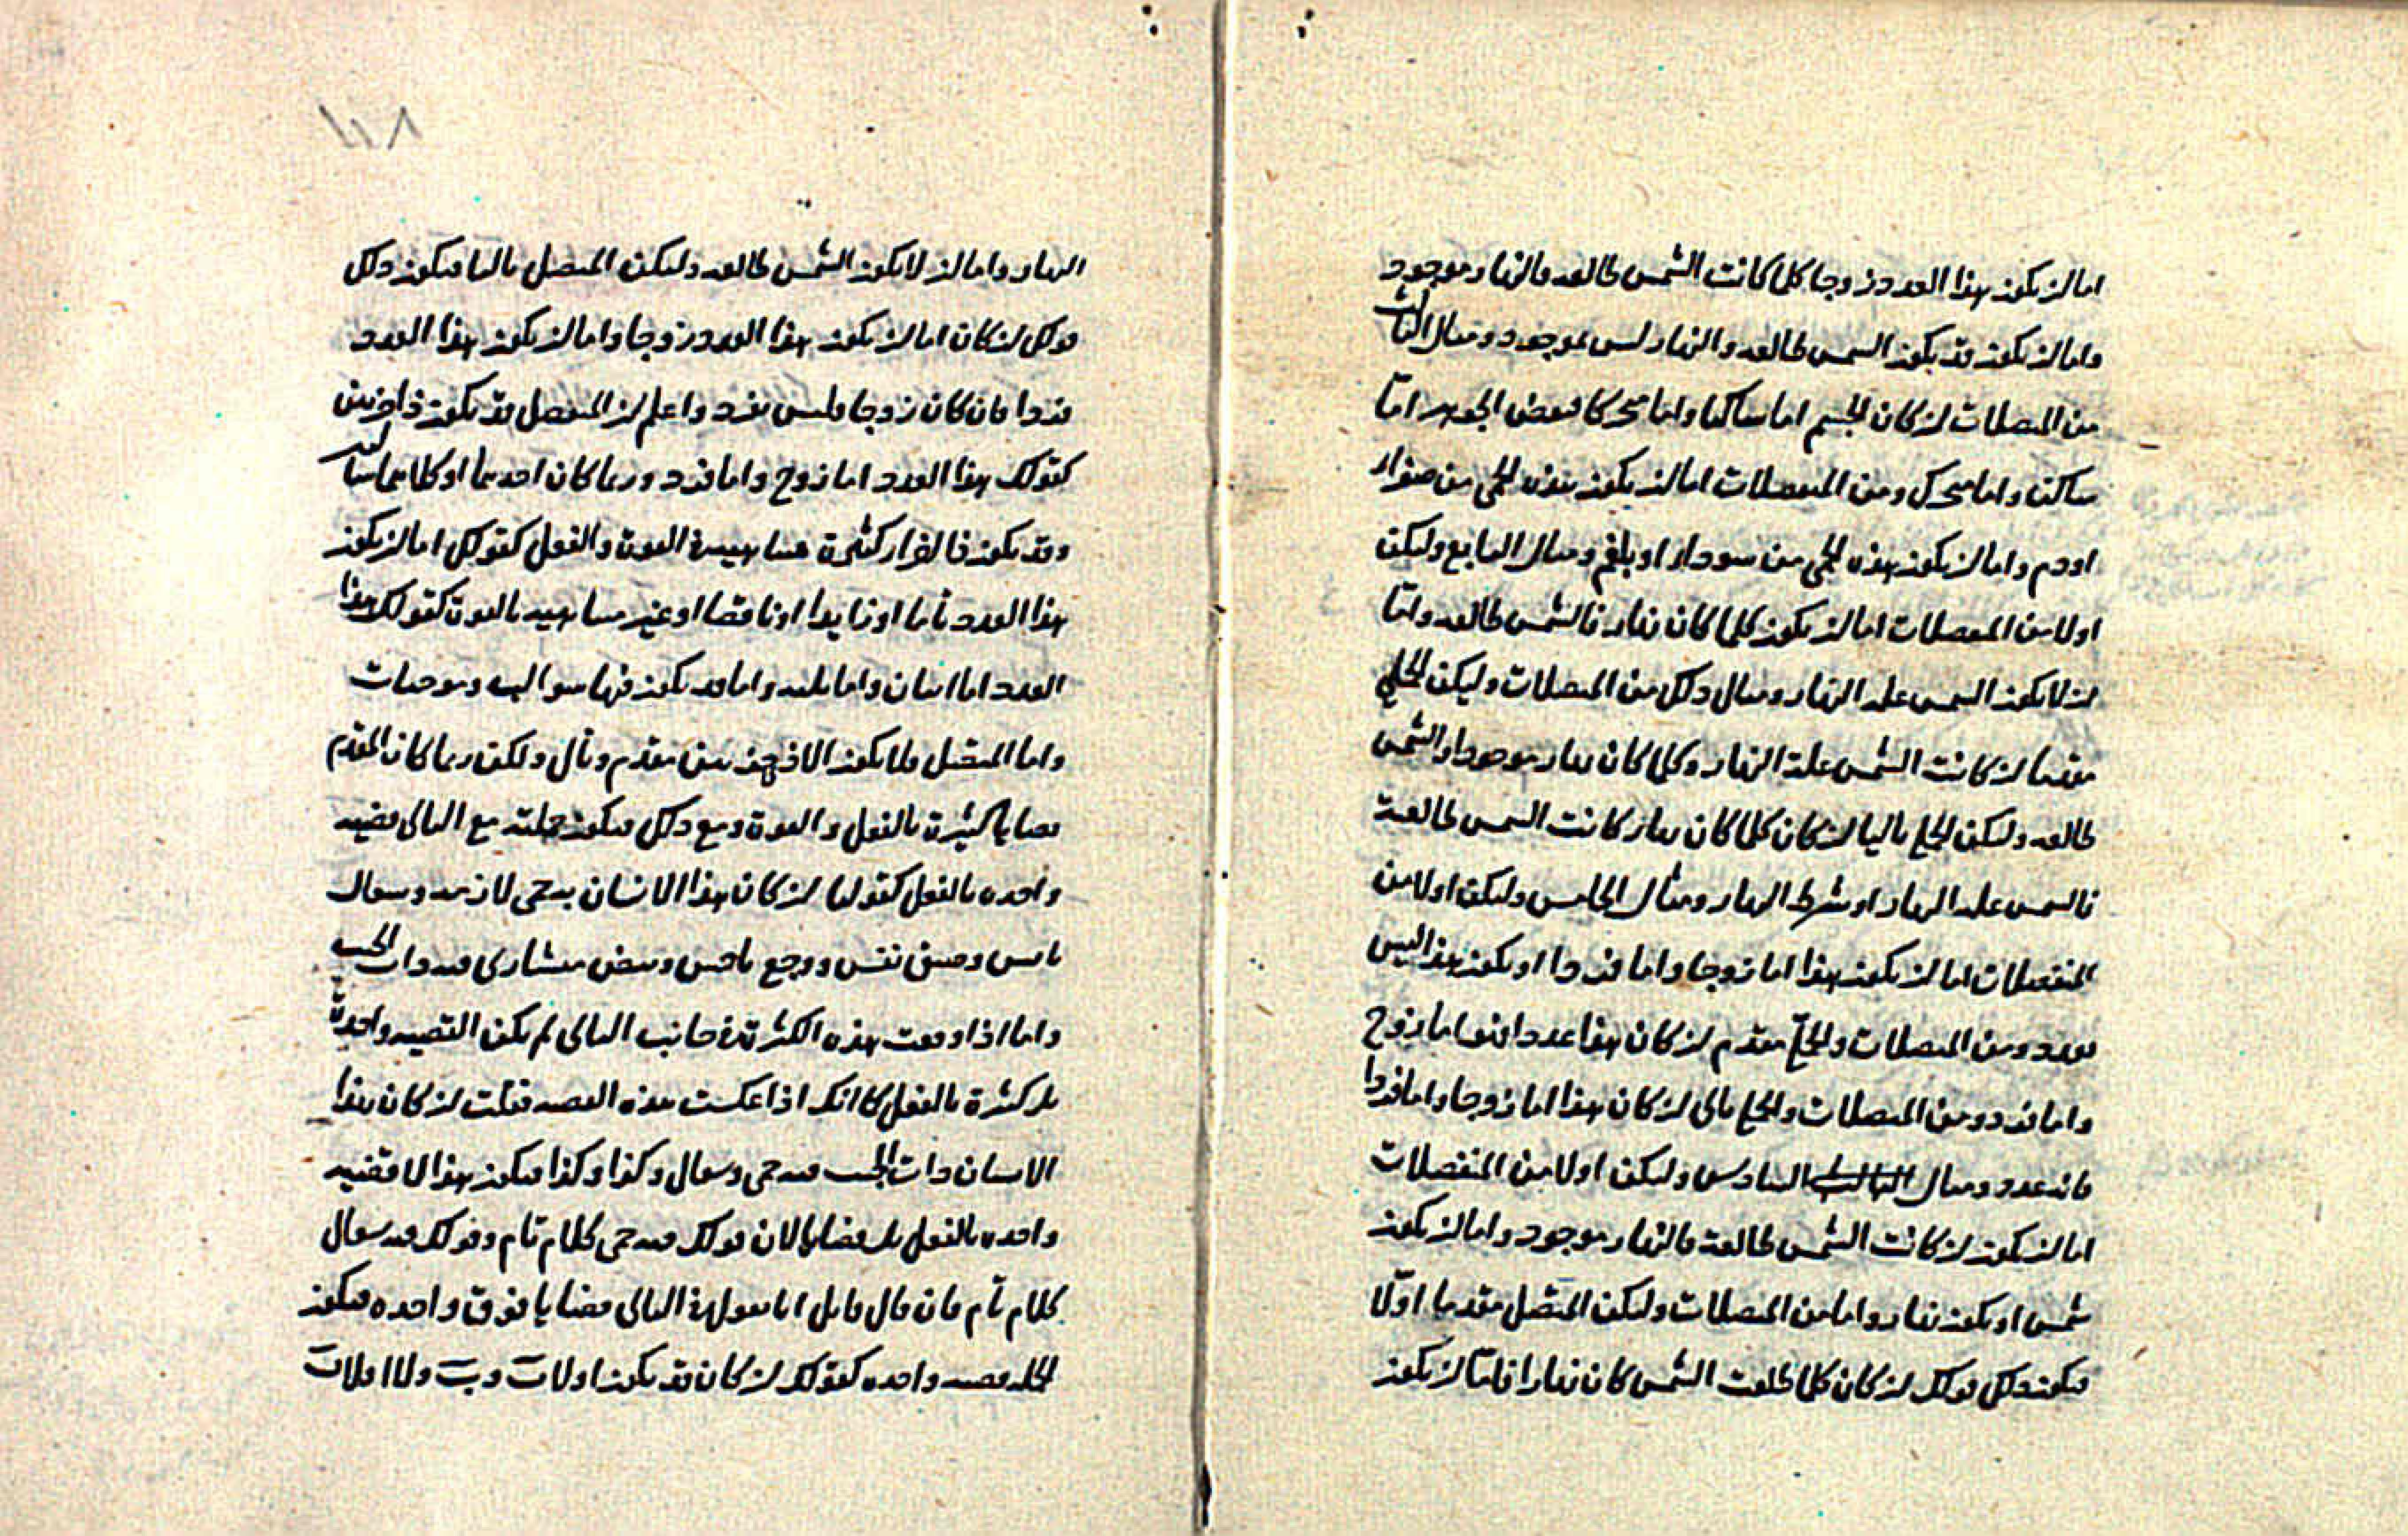 اما ان يكون هذا العدد زوجا كلما كانت الشمس طالعه فالنهار موجود
واما ان يكون قد يكون الشمس طالعه والنهار ليس بموجود ومثال الثالث
من المتصلات ان كان الجسم اما ساكنا واما متحركا فبعض الجوهر اما
ساكن واما متحرك ومن المنفصلات اما ان يكون هذه الحمى من صفراء
او دم واما ان يكون هذه الحمى من سوداء او بلغم ومثال الرابع وليكن
اولا من المنفصلات اما ان يكون كلما كان نهار فالشمس طالعه واما
ان لا يكون الشمس علة النهار ومثال ذلك من المتصلات وليكن الحملي
مقدما ان كانت الشمس علة النهار وكلما كان نهار موجودا والشمس
طالعه وليكن الحملي تاليا ان كان كلما كان نهار كانت الشمس طالعة
فالشمس علة النهار او شرط النهار ومثال الخامس وليكن اولا من
المنفصلات اما ان يكون هذا اما زوجا واما فردا او يكون هذا ليس
بعدد ومن المتصلات والحملي مقدم ان كان هذا عددا فهو اما زوج
واما فرد ومن المتصلات والحملي تالي ان كان هذا اما زوجا واما فردا
فانه عدد ومثال السادس وليكن اولا من المنفصلات
اما ان يكون ان كانت الشمس طالعة فالنهار موجود واما ان يكون
شمس او يكون نهار واما من المتصلات وليكن المتصل مقدما اولا
فيكون ذلك قولك ان كان كلما طلعت الشمس كان نهارا فاما ان يكون
النهار واما ان لا يكون الشمس طالعه وليكن المتصل تاليا فيكون ذلك
قولك ان كان اما ان يكون هذا العدد زوجا واما ان يكون هذا العدد
فردا فان كان زوجا فليس بفرد واعلم ان المنفصل قد يكون ذا جزئين
كقولك هذا العدد اما زوج واما فرد وربما كان احدهما او كلاهما سالبين
وقد يكون ذا اجزاء كثيرة متناهية في القوة والفعل كقولك اما ان يكون
هذا العدد تاما او زايدا او ناقصا او غير متناهيه بالقوة كقولك هذا
العدد اما اثنان واما ثلثه واما قد يكون فيها سوالب وموجبات
واما المتصل فلا يكون الا ذا جزئين مقدم وتال ولكن ربما كان المقدم
قضايا كثيرة بالفعل والقوة ومع ذلك فيكون جملته مع التالي قضيه
واحده بالفعل كقولنا ان كان هذا الانسان به حمى لازمه وسعال
يابس وضيق نفس ووجع ناخس ونبض منشاري فبه ذات الجنب
واما اذا وقعت هذه الكثرة في جانب التالي لم يكن القضيه واحدة
بل كثيرة بالفعل كما انك اذا عكست هذه القصه فقلت ان كان هذا
الانسان ذات الجنب فبه حمى وسعال وكذا وكذا فيكون هذا لا قضيه
واحده بالفعل بل قضايا لان قولك فبه حمى كلام تام وقولك فبه سعال
كلام تام فان قال قايل انا نقول في التالي قضايا فوق واحده فيكون
الجمله قضيه واحده كقولك ان كان قد يكون اولا آ و ب ولا اولا آ